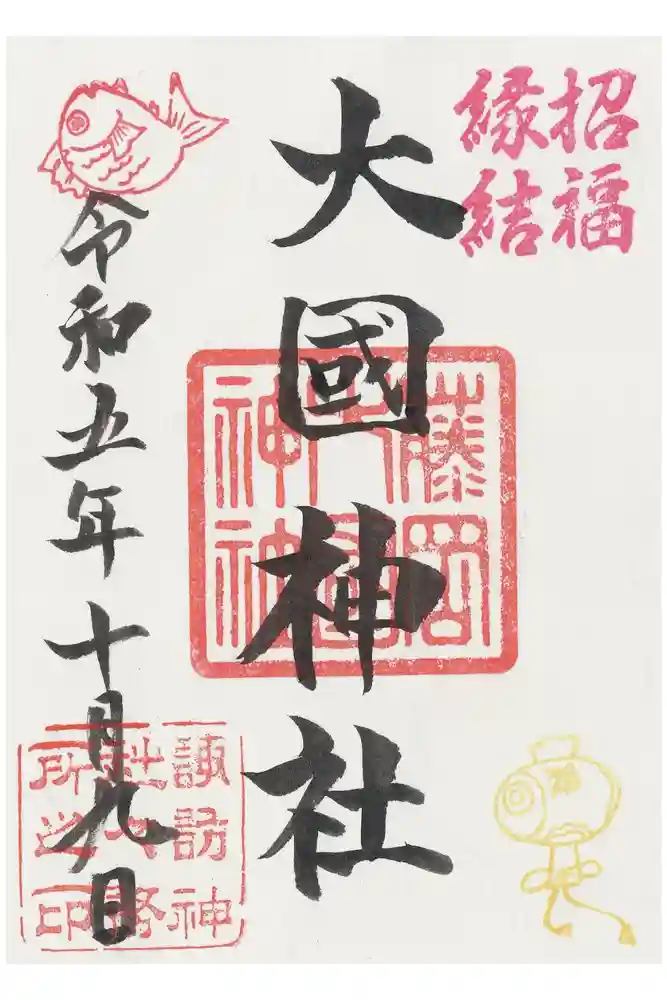 招福
縁結
大國神社
藤岡
大國
神社
令和五年十月九日
諏訪神
社社務
所之印